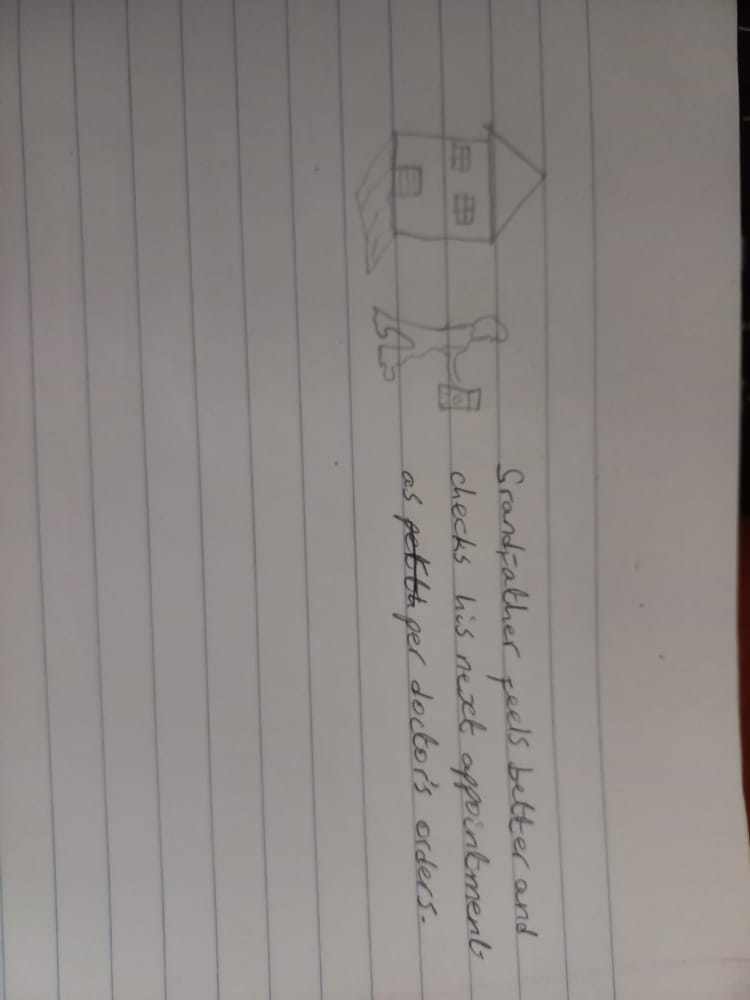 Grandfather feels better and
checks his next appointment
as per doctor's orders.